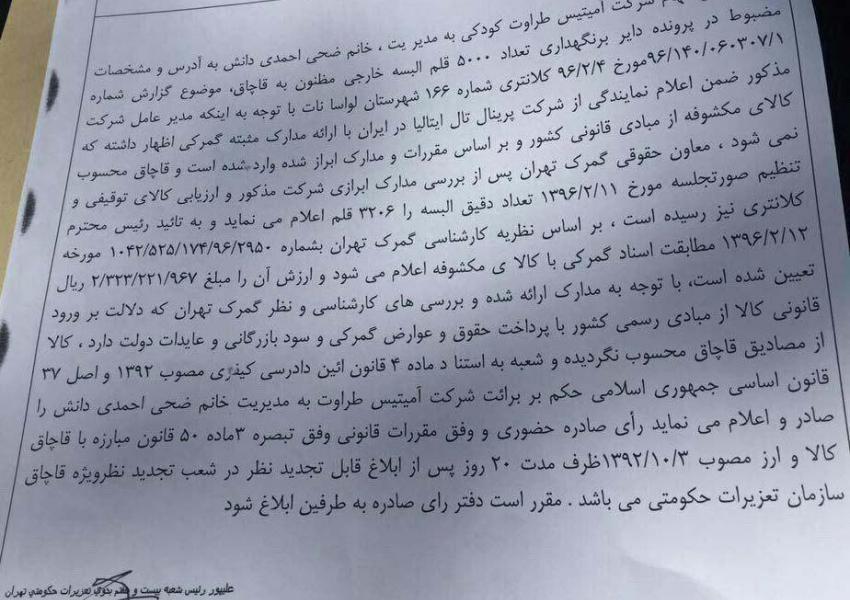 شرکت آمیتیس طراوت کودکی به مدیر یت ، خانم ضحی احمدی دانش به آدرس و مشخصات
مضبوط در پرونده دایر برنگهداری تعداد ۵۰۰۰ قلم البسه خارجی مظنون به قاچاق، موضوع گزارش شماره
۹۶/۱۴۰/۰۶۰۳۰۷/۱مورخ ۹۶/۲/۴ کلانتری شماره ۱۶۶ شهرستان لواسا نات با توجه به اینکه مدیر عامل شرکت
مذکور ضمن اعلام نمایندگی از شرکت پرینال تال ایتالیا در ایران با ارائه مدارک مثبته گمرکی اظهار داشته که
کالای مکشوفه از مبادی قانونی کشور و بر اساس مقررات و مدارک ابراز شده وارد شده است و قاچاق محسوب
نمی شود ، معاون حقوقی گمرک تهران پس از بررسی مدارک ابرازی شرکت مذکور و ارزیابی کالای توقیفی و
تنظیم صورتجلسه مورخ ۱۳۹۶/۲/۱۱ تعداد دقیق البسه را ۳۲۰۶ قلم اعلام می نماید و به تائید رئیس محترم
کلانتری نیز رسیده است ، بر اساس نظریه کارشناسی گمرک تهران بشماره ۱۰۴۲/۵۲۵/۱۷۴/۹۶/۲۹۵۰ مورخه
۱۳۹۶/۲/۱۲ مطابقت اسناد گمرکی با کالا ی مکشوفه اعلام می شود و ارزش آن را مبلغ ۲/۳۲۳/۲۲۱/۹۶۷ ریال
تعیین شده است، با توجه به مدارک ارائه شده و بررسی های کارشناسی و نظر گمرک تهران که دلالت بر ورود
قانونی کالا از مبادی رسمی کشور با پرداخت حقوق و عوارض گمرکی و سود بازرگانی و عایدات دولت دارد ، کالا
از مصادیق قاچاق محسوب نگردیده و شعبه به استنا د ماده ۴ قانون ائین دادرسی کیفری مصوب ۱۳۹۲ و اصل ۳۷
قانون اساسی جمهوری اسلامی حکم بر برائت شرکت آمیتیس طراوت به مدیریت خانم ضحی احمدی دانش را
صادر و اعلام می نماید رأی صادره حضوری و وفق مقررات قانونی وفق تبصره ۳ماده ۵۰ قانون مبارزه با قاچاق
کالا و ارز مصوب ۱۳۹۲/۱۰/۳ظرف مدت ۲۰ روز پس از ابلاغ قابل تجدید نظر در شعب تجدید نظرویژه قاچاق
سازمان تعزیرات حکومتی می باشد . مقرر است دفتر رای صادره به طرفین ابلاغ شود
علیپور رئیس شعبه بیست و بدوی تعزیرات حکومتی تهران